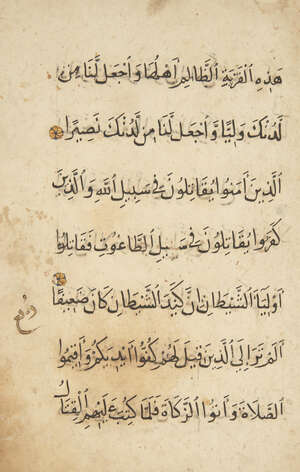 هَذِهِ ٱلْقَرْيَةِ ٱلظَّالِمِ أَهْلُهَا وَٱجْعَل لَّنَا مِن
لَّدُنْكَ وَلِيًّا وَٱجْعَل لَّنَا مِن لَّدُنْكَ نَصِيرًا
ٱلَّذِينَ آمَنُوا يُقَاتِلُونَ فِي سَبِيلِ ٱللَّهِ وَٱلَّذِينَ
كَفَرُوا يُقَاتِلُونَ فِي سَبِيلِ ٱلطَّاغُوتِ فَقَاتِلُوا
أَوْلِيَآءَ ٱلشَّيْطَانِ إِنَّ كَيْدَ ٱلشَّيْطَانِ كَانَ ضَعِيفًا
أَلَمْ تَرَ إِلَى ٱلَّذِينَ قِيلَ لَهُمْ كُفُّوا أَيْدِيَكُمْ وَأَقِيمُوا
ٱلصَّلَاةَ وَآتُوا ٱلزَّكَاةَ فَلَمَّا كُتِبَ عَلَيْهِمُ ٱلْقِتَالُ